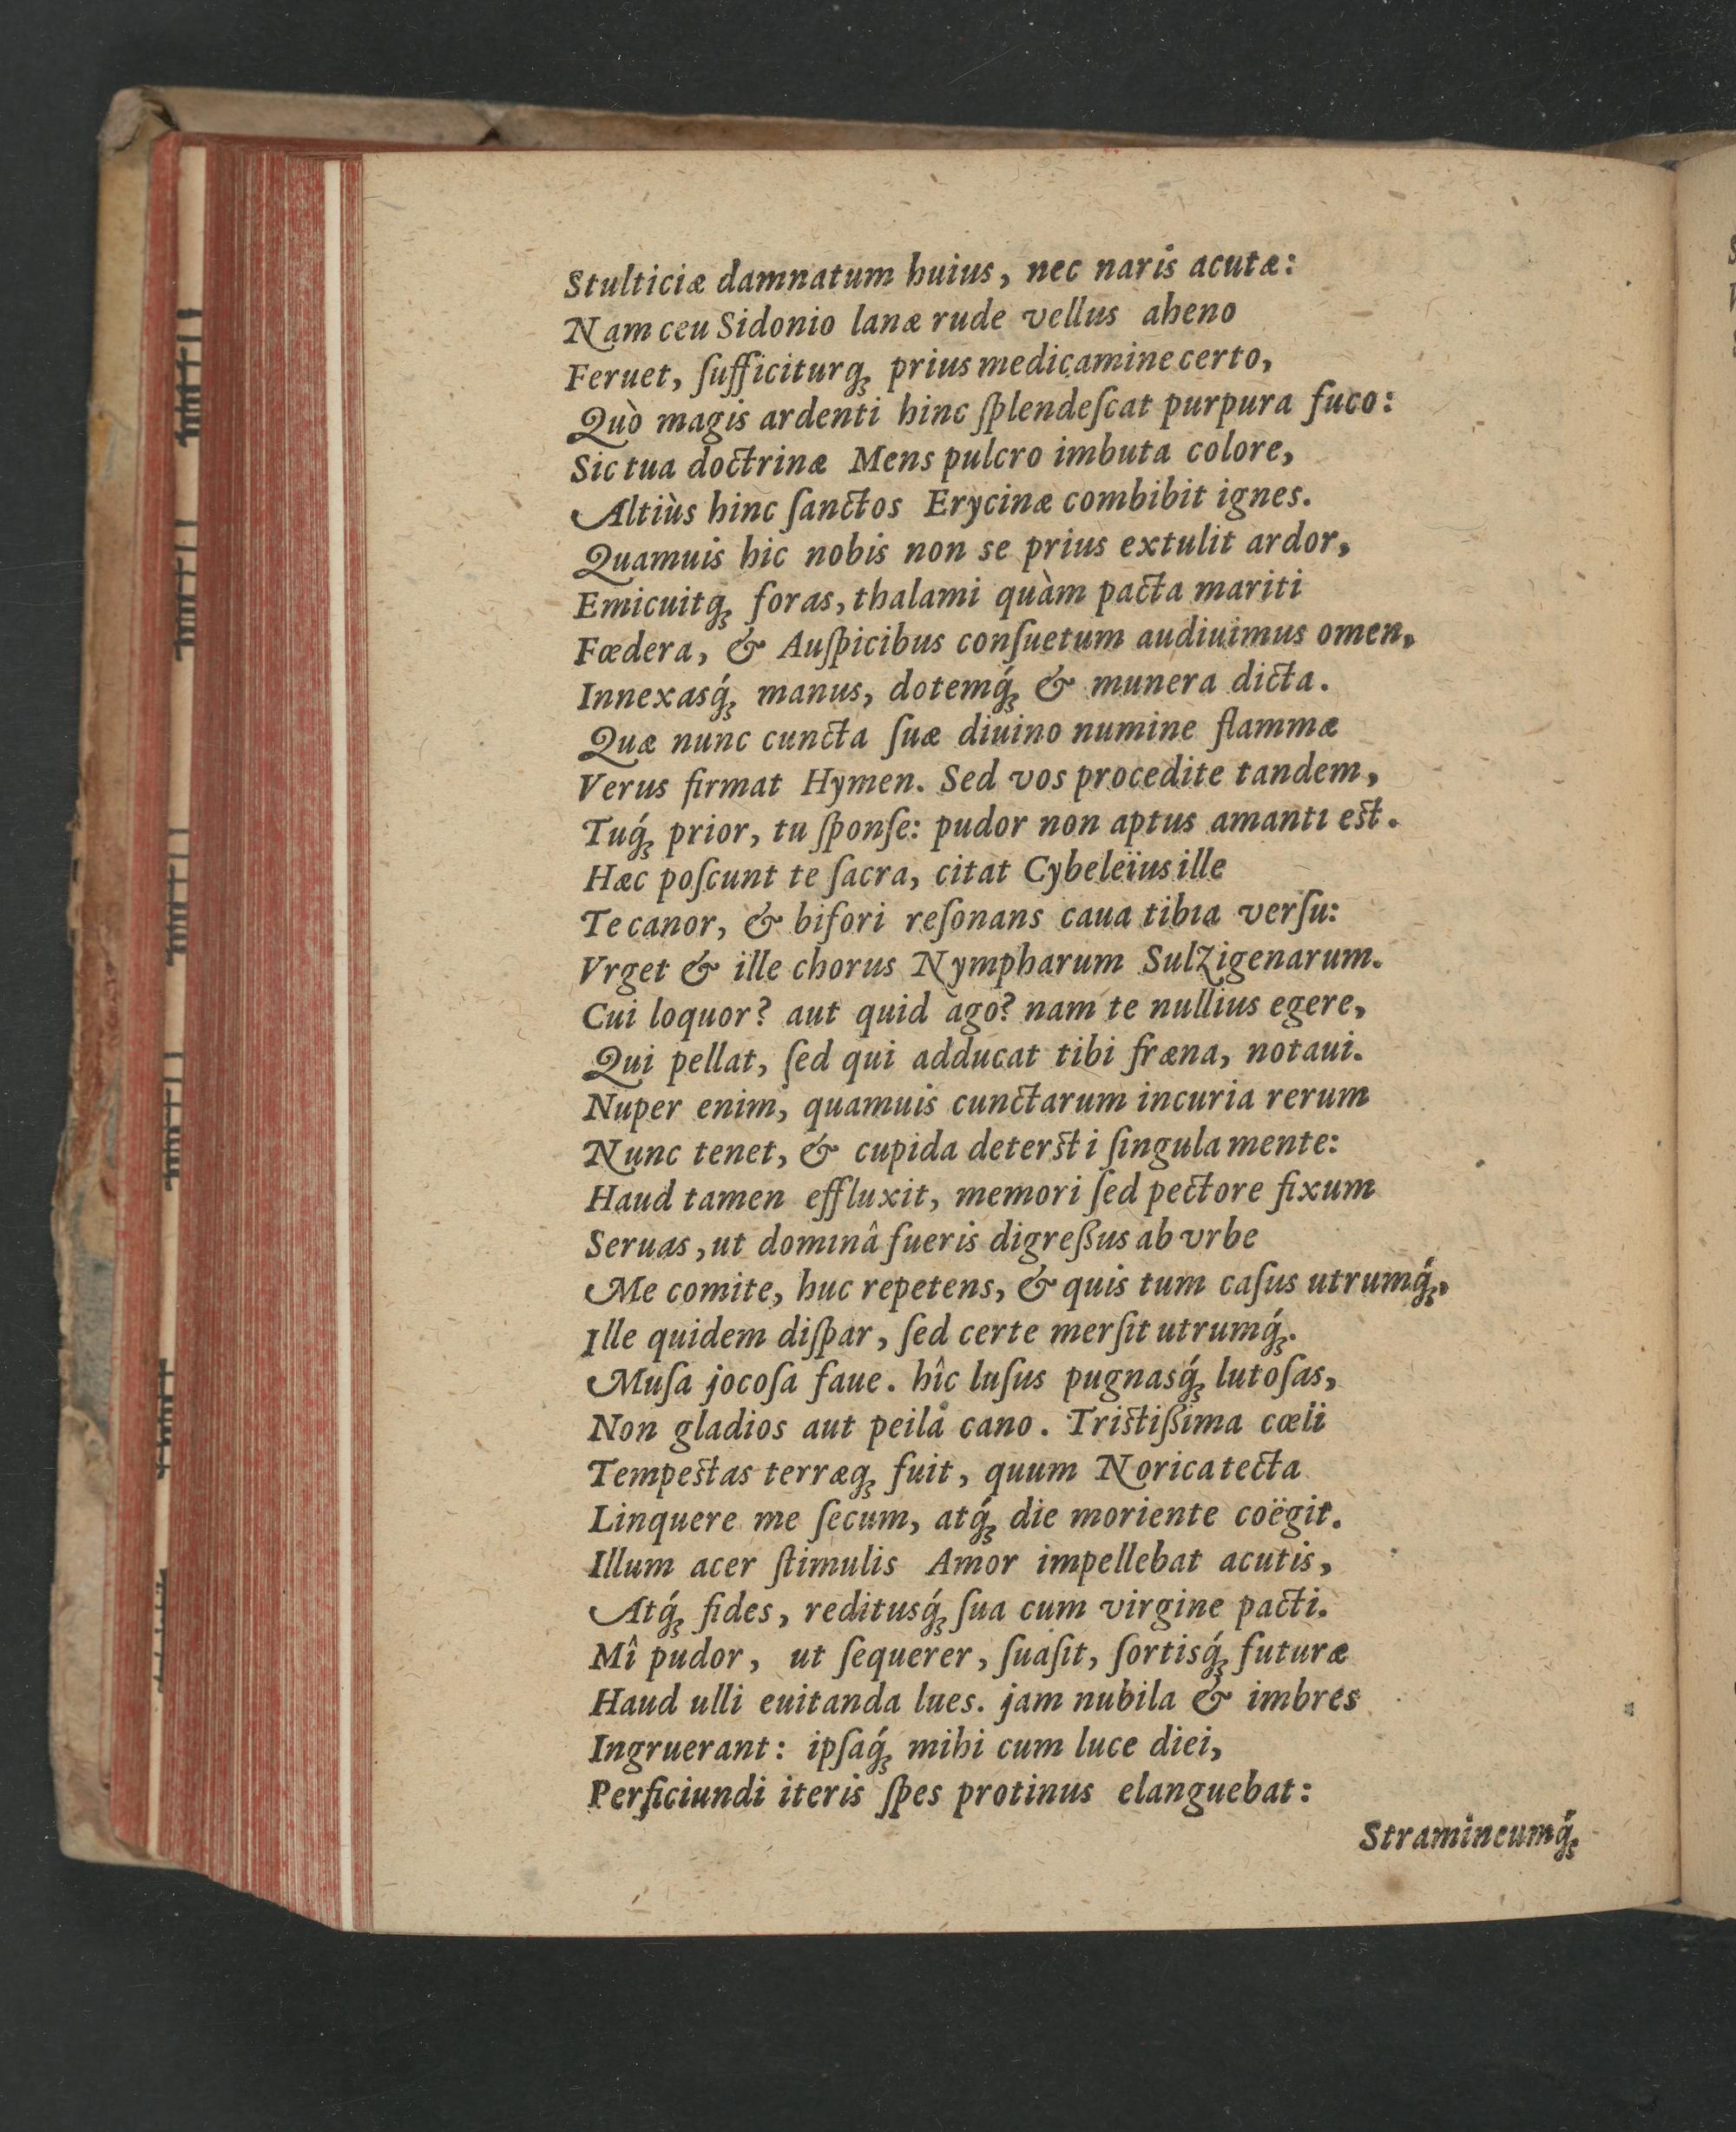 Stulticiæ damnatum huius, nec naris acutæ:
Nam ceu Sidonio lanæ rude vellus aheno
Feruet, ſufficiturq́ꝫ prius medicamine certo,
Quò magis ardenti hinc ſplendeſcat purpura fuco:
Sic tua doctrinæ Mens pulcro imbuta colore,
Altiùs hinc ſanctos Erycinæ combibit ignes.
Quamuis hic nobis non se prius extulit ardor,
Emicuitqꝫ foras, thalami quàm pacta mariti
Fœdera, & Auſpicibus conſuetum audiuimus omen,
Innexasq́ꝫ manus, dotemq́ꝫ & munera dicta.
Quæ nunc cuncta ſuæ diuino numine flammæ
Verus firmat Hymen. Sed vos procedite tandem,
Tuq́ꝫ prior, tu ſponſe: pudor non aptus amanti est.
Hæc poſcunt te ſacra, citat Cybeleïus ille
Te canor, & bifori reſonans caua tibia verſu:
Vrget & ille chorus Nympharum Sulzigenarum.
Cui loquor? aut quid ago? nam te nullius egere,
Qui pellat, ſed qui adducat tibi fræna, notaui.
Nuper enim, quamuis cunctarum incuria rerum
Nunc tenet, & cupida detersti ſingula mente:
Haud tamen effluxit, memori ſed pectore fixum
Seruas, ut dominâ fueris digreßus ab vrbe
Me comite, huc repetens, & quis tum caſus utrumq́ꝫ,
Ille quidem diſpar, ſed certe merſit utrumq́ꝫ.
Muſa jocoſa faue. hîc luſus pugnasq́ꝫ lutoſas,
Non gladios aut peila cano. Tristißima cœli
Tempestas terræqꝫ fuit, quum Norica tecta
Linquere me ſecum, atq́ꝫ die moriente coëgit.
Illum acer ſtimulis Amor impellebat acutis,
Atq́ꝫ fides, reditusq́ꝫ ſua cum virgine pacti.
Mî pudor, ut ſequerer, ſuaſit, ſortisq́ꝫ futuræ
Haud ulli euitanda lues. jam nubila & imbres
Ingruerant: ipſaq́ꝫ mihi cum luce diei,
Perficiundi iteris ſpes protinus elanguebat:
Stramineumq́ꝫ